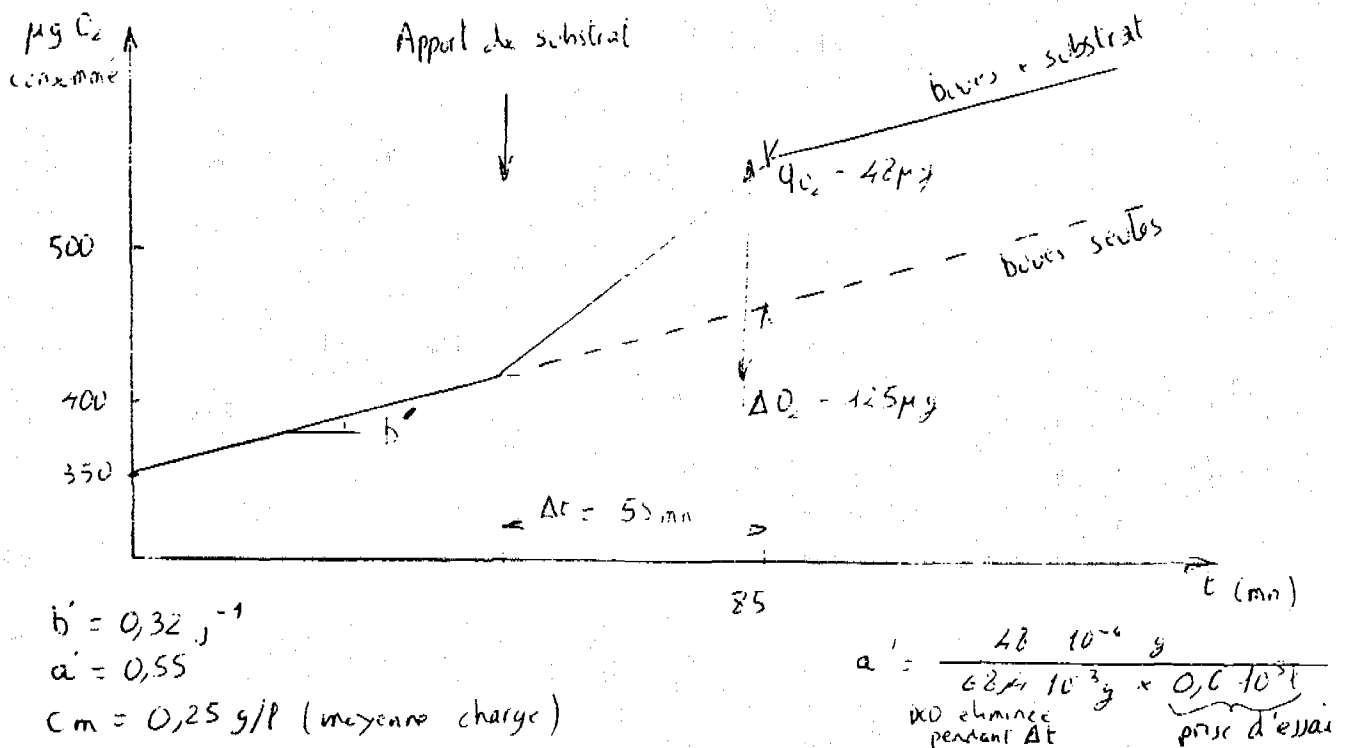 µg O₂
consommé
Apport de substrat
boues + substrat
qO₂ = 42 µg
500
boues seules
400
ΔO₂ = 125 µg
b'
350
Δt = 55 mn
85
t (mn)
b' = 0,32 j⁻¹
a' = 0,55
cm = 0,25 g/l (moyenne charge)
a' = 10⁻⁶ g
10⁻³g ×
DCO éliminée
pendant Δt
prise d'essai